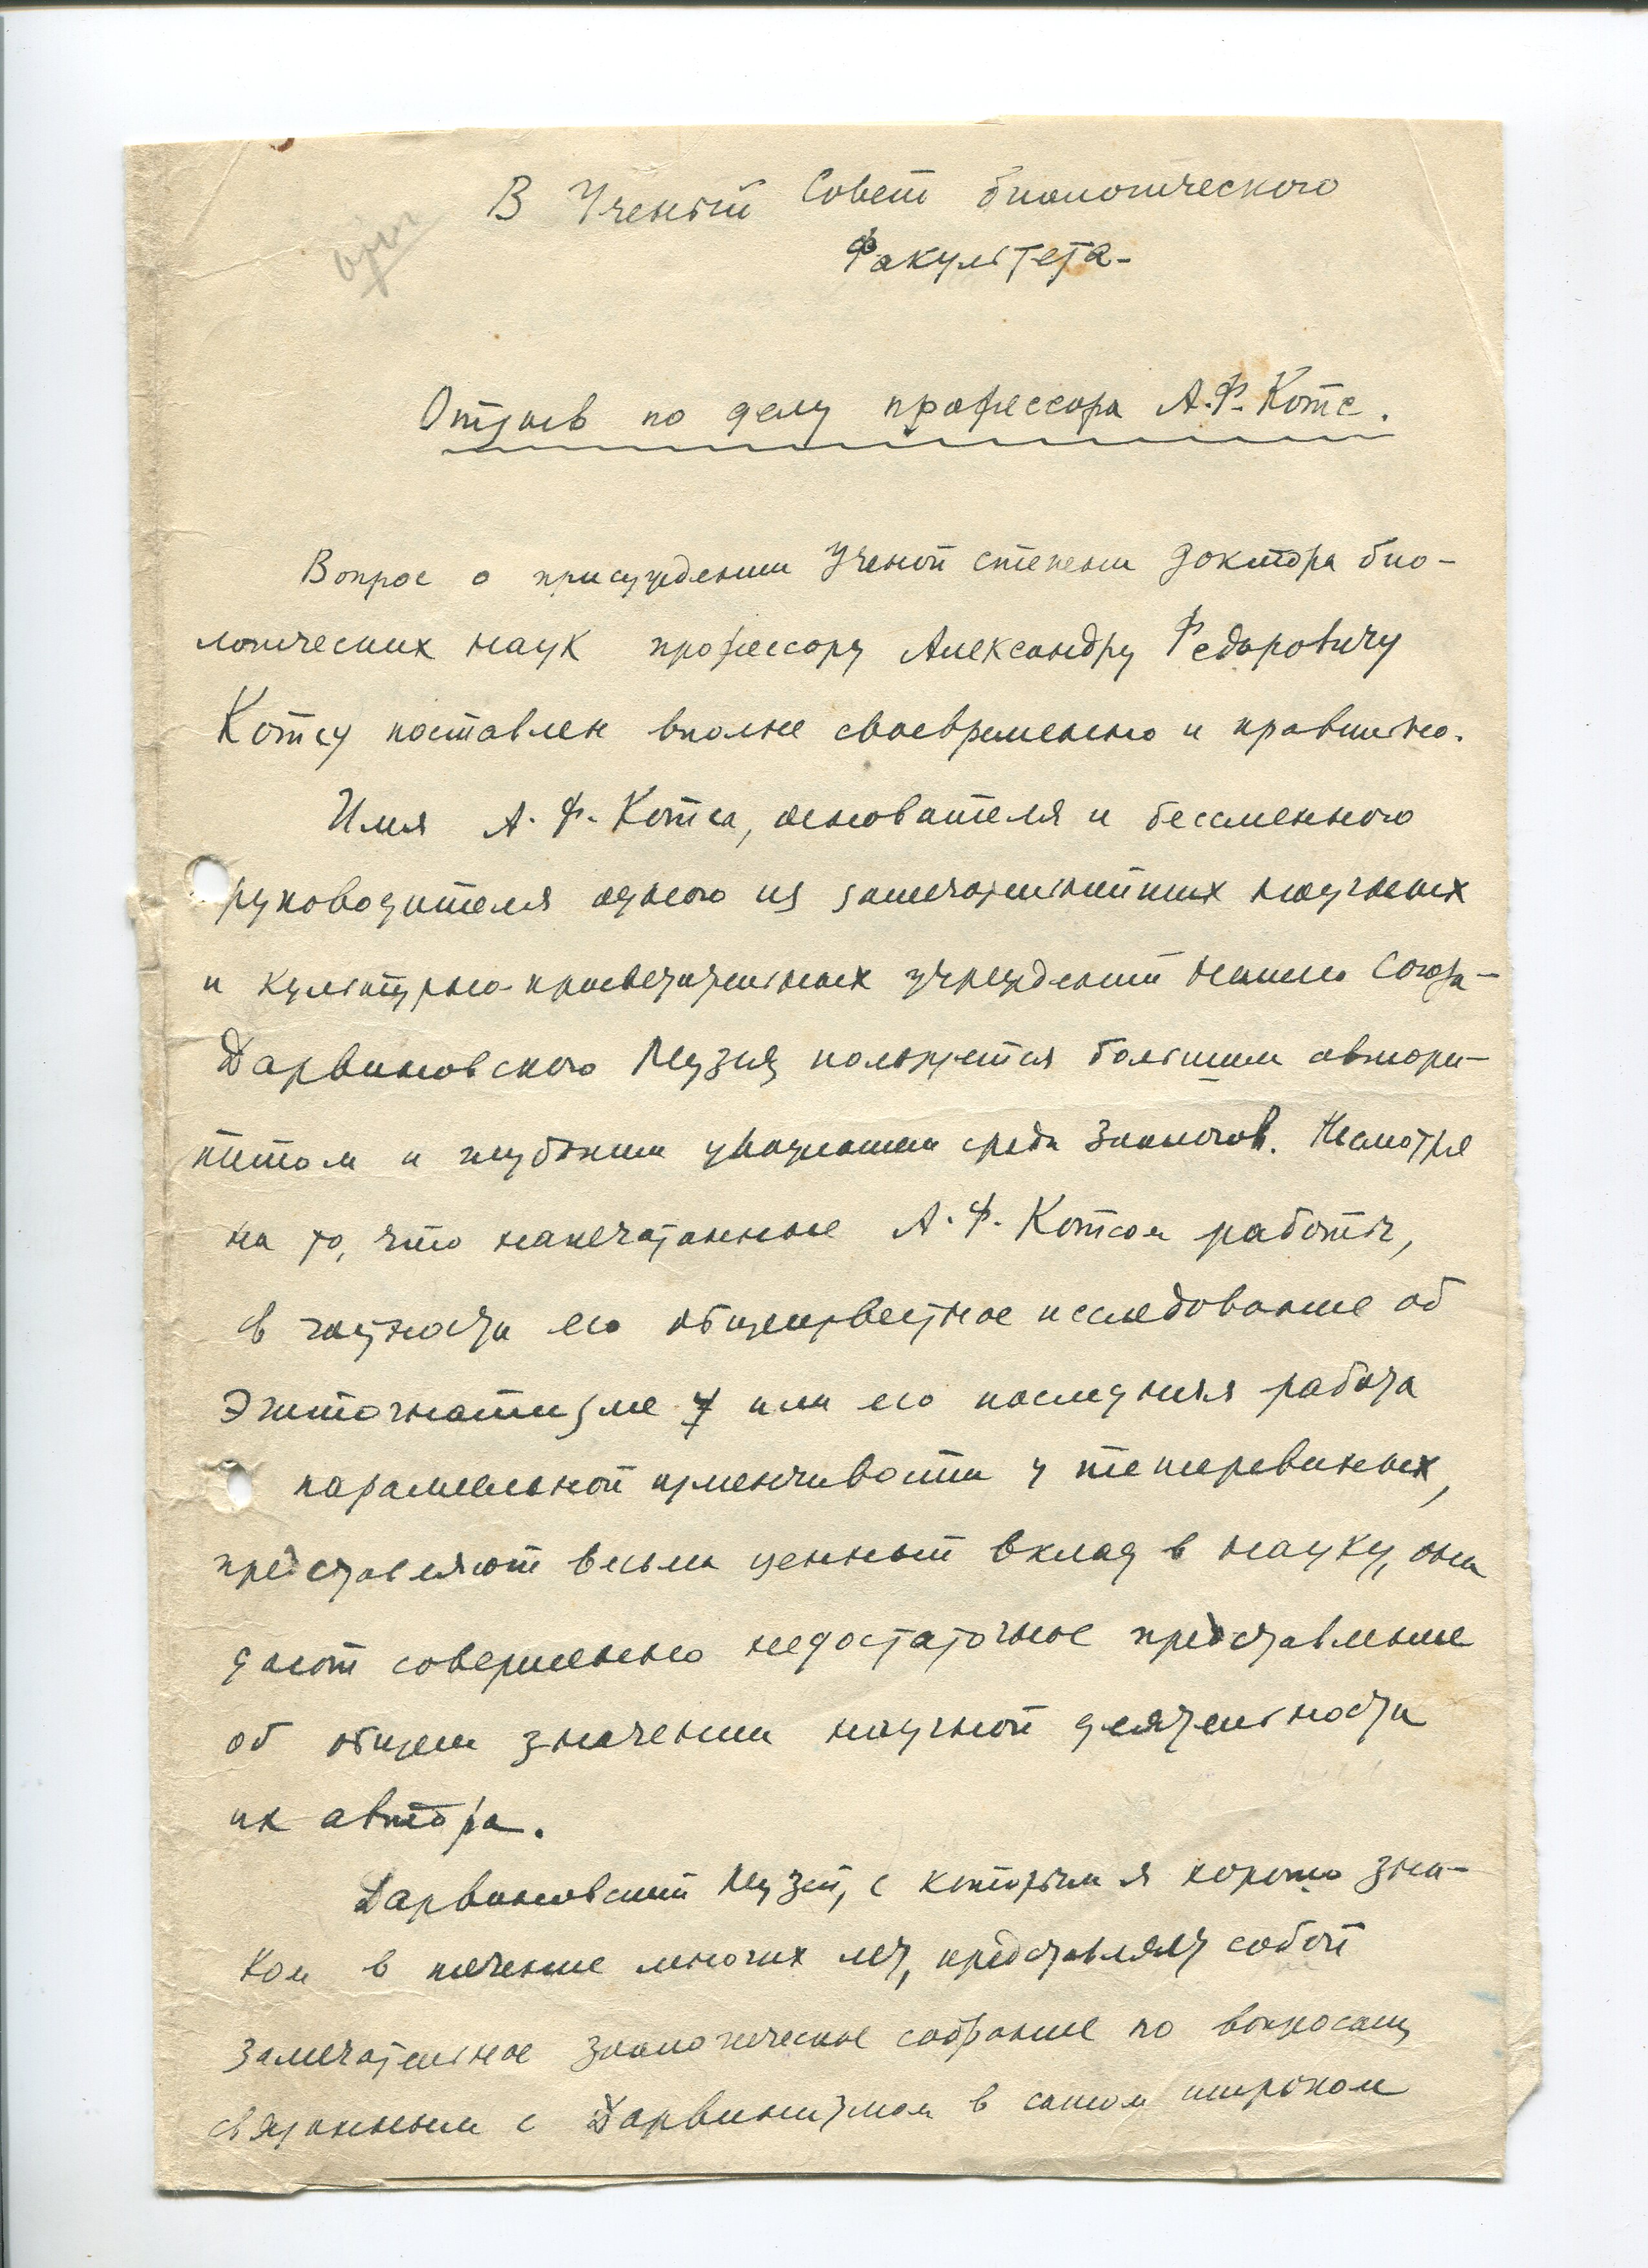 В Ученый Совет биологического
Факультета-
Отзыв по делу профессора А.Ф. Котс.
Вопрос о присуждении Ученой степени Доктора био-
логических наук профессору Александру Федоровичу
Котсу поставлен вполне своевременно и правильно.
Имя А.Ф. Котса, основателя и бессменного
руководителя одного из замечательнейших научных
и культурно-просветительных учреждений нашего Союза-
Дарвиновского Музея, пользуется большим автори-
тетом и глубоким уважением среди Зоологов. Несмотря
на то, что напечатанные А.Ф. Котсом работы,
в частности его общеизвестное исследование об
или его последняя работа
параллельной изменчивости у тетеревиных,
представляют весьма ценный вклад в науку, они
дают совершенно недостаточное представление
об общем значении научной деятельности
их автора.
Дарвиновский Музей, с которым я хорошо зна-
ком в течение многих лет, представляет собой
замечательное зоологическое собрание по вопросам,
связанным с Дарвинизмом в самом широком